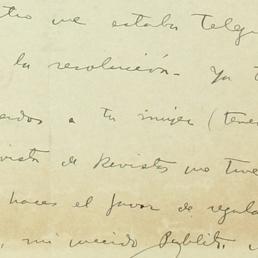 tro me estaba telegr
la resolución. Ya t
dos a tu mujer (tene
vista de Revistas no tuve
haces el favor de regala
, mi querido Publito,